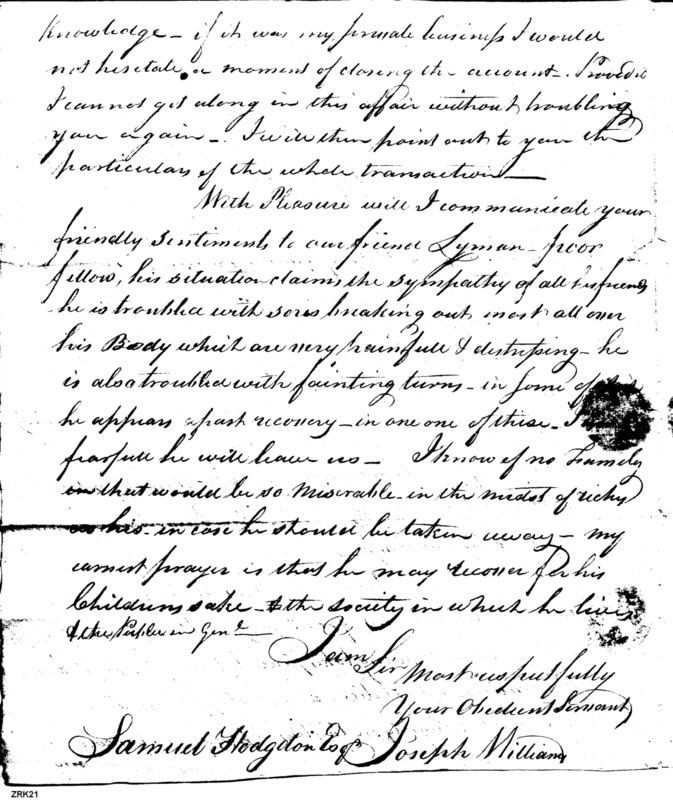 Knowledge – if it was my private business I would
not hesitate a moment of closing the account –. Provided
I cannot get along in this affair without troubling
you again –. I will then point out to you the
particulars of the whole transaction —
With Pleasure will I communicate your
friendly sentiments to our friend Lyman – poor
fellow, his situation claims the sympathy of all his friends
he is troubled with sores breaking out most all over
his Body which are very painfull & distressing – he
is also troubled with fainting turns – in some of
he appears apast recovery – in one one of these – I
fearfull he will leave us – I know of no Family
in that would be so Miserable – in the midst of riches
as his – in case he should be taken away – my
earnest prayer is that he may recover for his
Childrens sake – & the society in which he lives
& the Public in Genl –
I am Sir Most respectfully
Your Obedient Servant
Samuel Hodgdon Esqr Joseph Williams
ZRK21